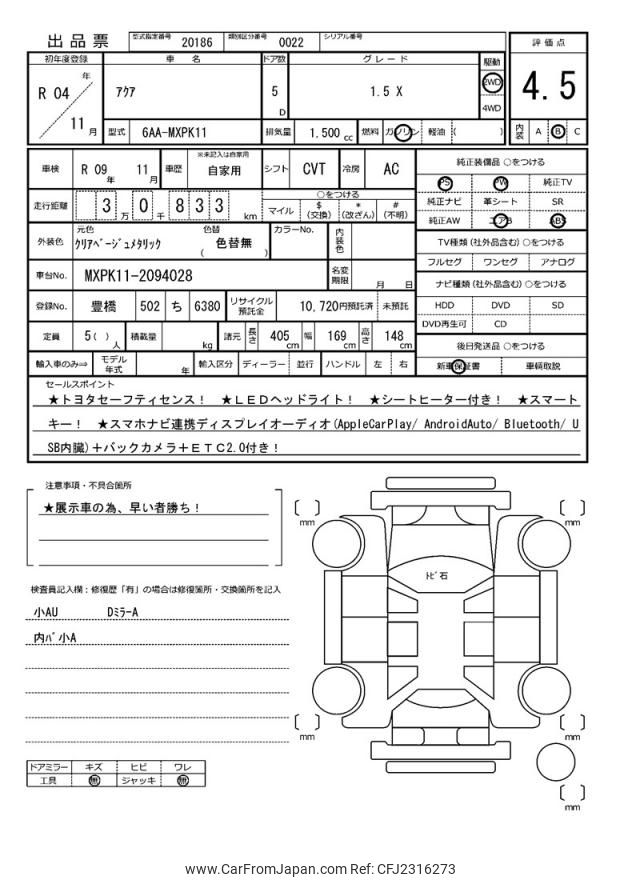 出品票 型式指定番号 20186 類別区分番号 0022 シリアル番号
評価点
初年度登録 車名 ドア数 グレード 駆動
R 04 年 アクア 5 D 1.5 X 2WD 4WD
4.5
11 月 型式 6AA-MXPK11 排気量 1.500 cc 燃料 ガソリン 軽油 ( )
内装 A B C
車検 R 09 年 11 月 車歴 ※未記入は自家用 自家用 シフト CVT 冷房 AC
純正装備品 ○をつける
PS PW 純正TV
走行距離 3 万 0 千 8 3 3 km ○をつける
マイル $ (交換) * (改ざん) # (不明)
純正ナビ 革シート SR
純正AW エアB ABS
外装色 元色 クリアベージュメタリック 色替 ( 色替無 ) カラーNo. 内装色
TV種類 (社外品含む) ○をつける
フルセグ ワンセグ アナログ
車台No. MXPK11-2094028 名変期限 月 日
ナビ種類 (社外品含む) ○をつける
登録No. 豊橋 502 ち 6380 リサイクル預託金 10,720円預託済 未預託
HDD DVD SD
DVD再生可 CD
定員 5( ) 人 積載量 kg 諸元 長さ 405 cm 幅 169 cm 高さ 148 cm
後日発送品 ○をつける
輸入車のみ⇒ モデル年式 年 輸入区分 ディーラー 並行 ハンドル 左 右
新車保証書 車輌取説
セールスポイント
★トヨタセーフティセンス! ★LEDヘッドライト! ★シートヒーター付き! ★スマート
キー! ★スマホナビ連携ディスプレイオーディオ(AppleCarPlay/ AndroidAuto/ Bluetooth/ U
SB内臓)+バックカメラ+ETC2.0付き!
注意事項・不具合箇所
★展示車の為、早い者勝ち!
検査員記入欄:修復歴「有」の場合は修復箇所・交換箇所を記入
小AU DミラーA
内バ小A
トビ石
mm
mm
mm
mm
mm
ドアミラー キズ ヒビ ワレ
工具 無 ジャッキ 無
www.CarFromJapan.com Ref: CFJ2316273